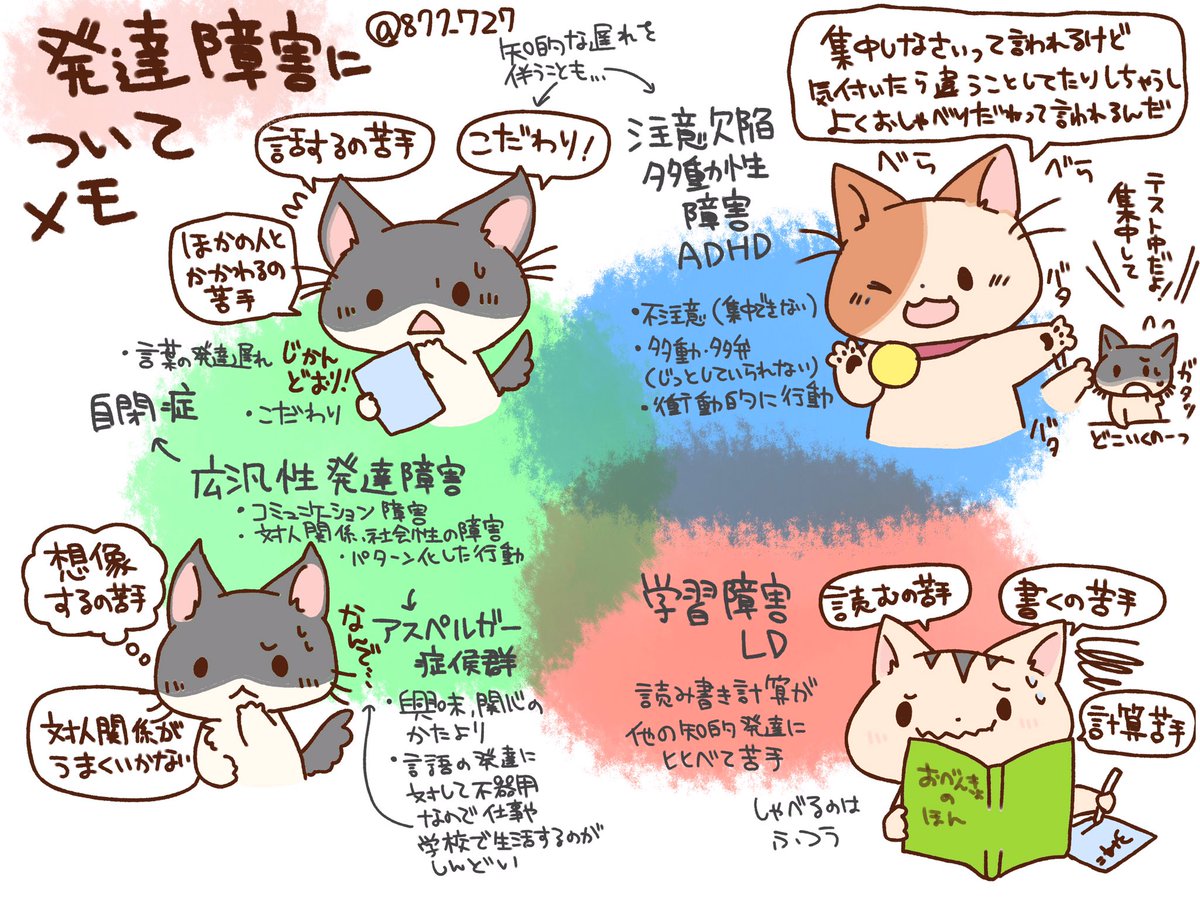 発達障害に
ついて
メモ
@877_727
知的な遅れを
伴うことも…
話するの苦手
こだわり！
ほかの人と
かかわるの
苦手
・言葉の発達遅れ
じかん
どおり！
自閉症
・こだわり
広汎性発達障害
・コミュニケーション障害
・対人関係、社会性の障害
・パターン化した行動
想像
するの苦手
なんで…
対人関係が
うまくいかない
アスペルガー
症候群
・興味、関心の
かたより
・言語の発達に
対して不器用
なので仕事や
学校で生活するのが
しんどい
注意欠陥
多動性
障害
ADHD
・不注意（集中できない）
・多動・多弁
（じっとしていられない）
・衝動的に行動
集中しなさいって言われるけど
気付いたら違うことしてたりしちゃうし
よくおしゃべりだねって言われるんだ
べら
べら
テスト中だよ！
集中して
バタ
バタ
ガタッ
どこいくのーっ
学習障害
LD
読み書き計算が
他の知的発達に
とくべて苦手
しゃべるのは
ふつう
読むの苦手
書くの苦手
計算苦手
おべんきょ
の
ほん